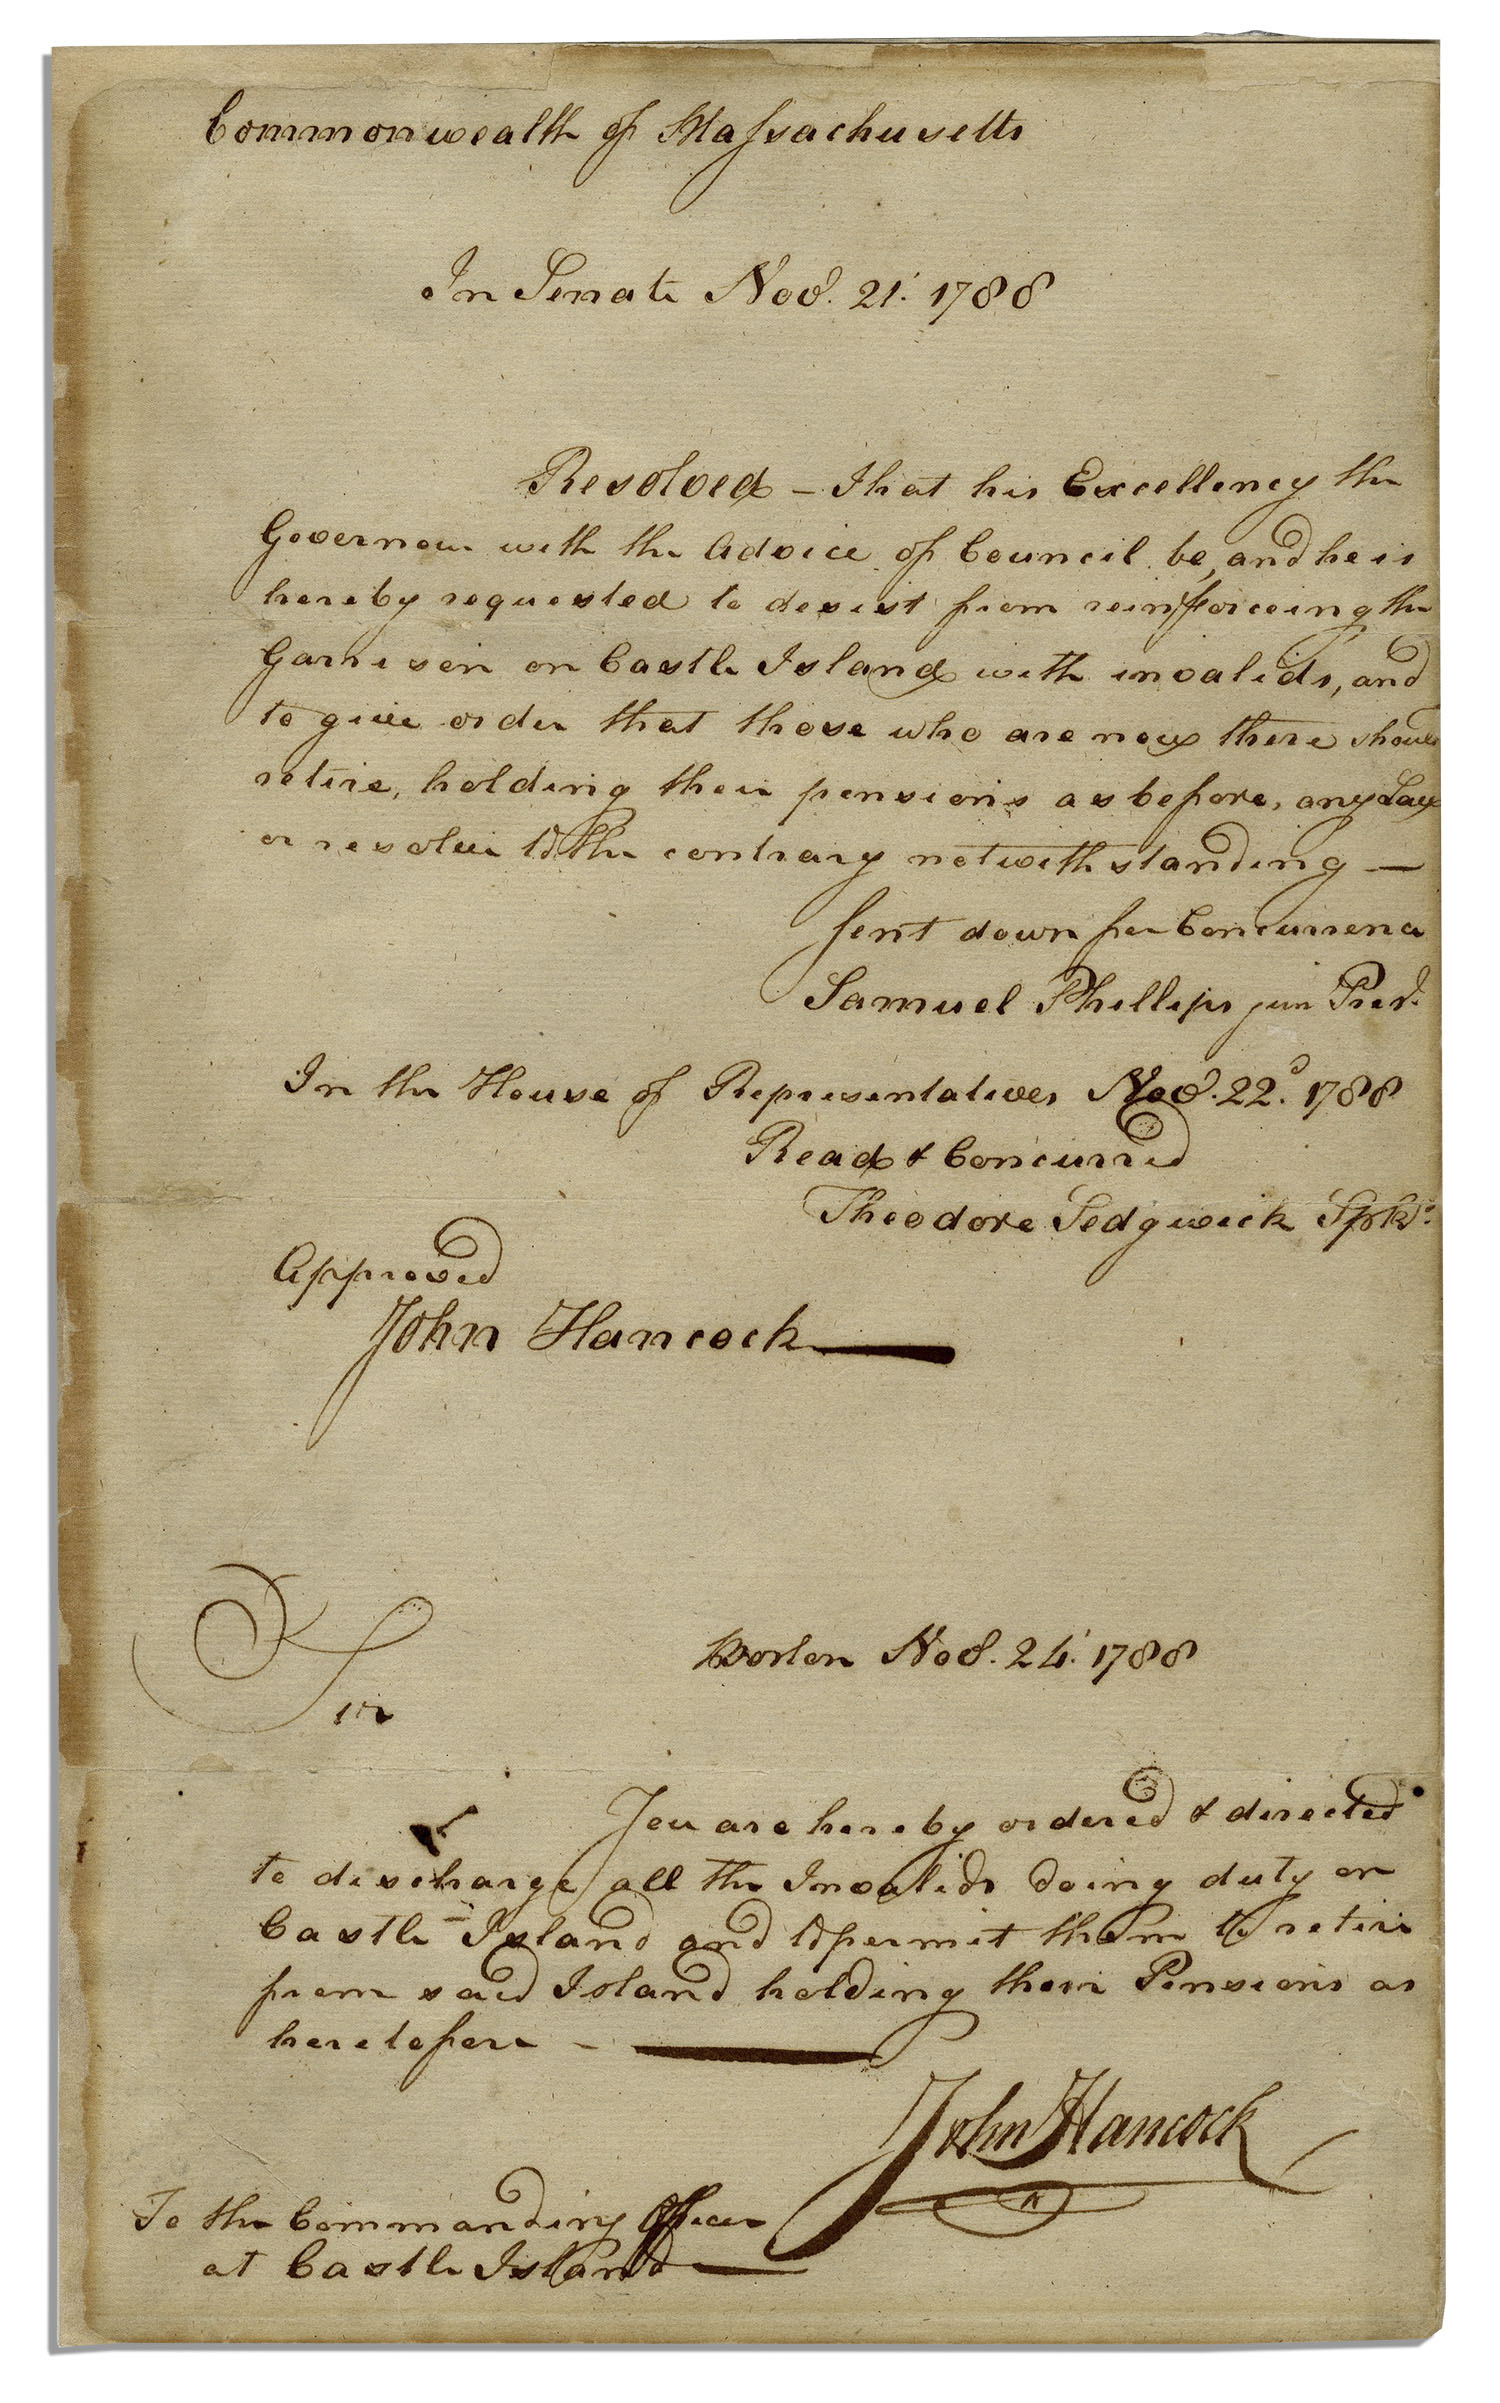 Commonwealth of Massachusetts
In Senate Nov.r 21.st 1788
Resolved – That his Excellency the
Governour with the Advice of Council be, and he is
hereby requested to desist from reinforceing the
Garrison on Castle Island with invalids, and
to give order that those who are now there should
retire, holding their pensions as before, any Law
or resolve to the contrary notwithstanding —
Sent down for Concurrence
Samuel Phillips jun Presd.t
In the House of Representatives Nov.r 22.d 1788
Read & Concurred
Theodore Sedgwick Spk.r
Approved
John Hancock
Boston Nov.r 24.th 1788
Sir
You are hereby ordered & directed
to discharge all the Invalids doing duty on
Castle Island and to permit them to retire
from said Island holding their Pensions as
heretofore –
John Hancock
To the Commanding Officer
at Castle Island